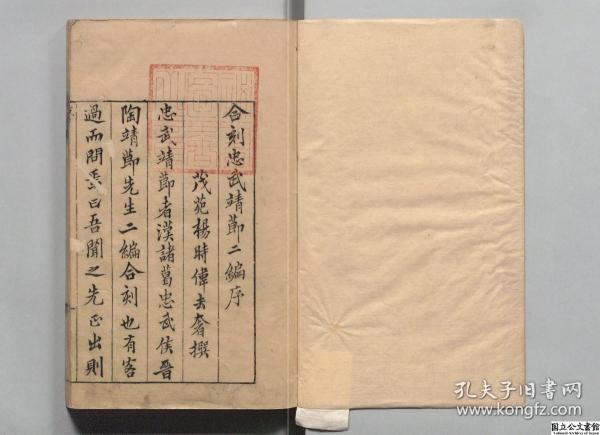 合刻忠武靖節二編序
茂苑楊時偉去奢撰
忠武靖節者漢諸葛忠武侯晉
陶靖節先生二編合刻也有客
過而問焉曰吾聞之先正出則
孔夫子旧书网
www.kongfz.com
国立公文書館
National Archives of Japan